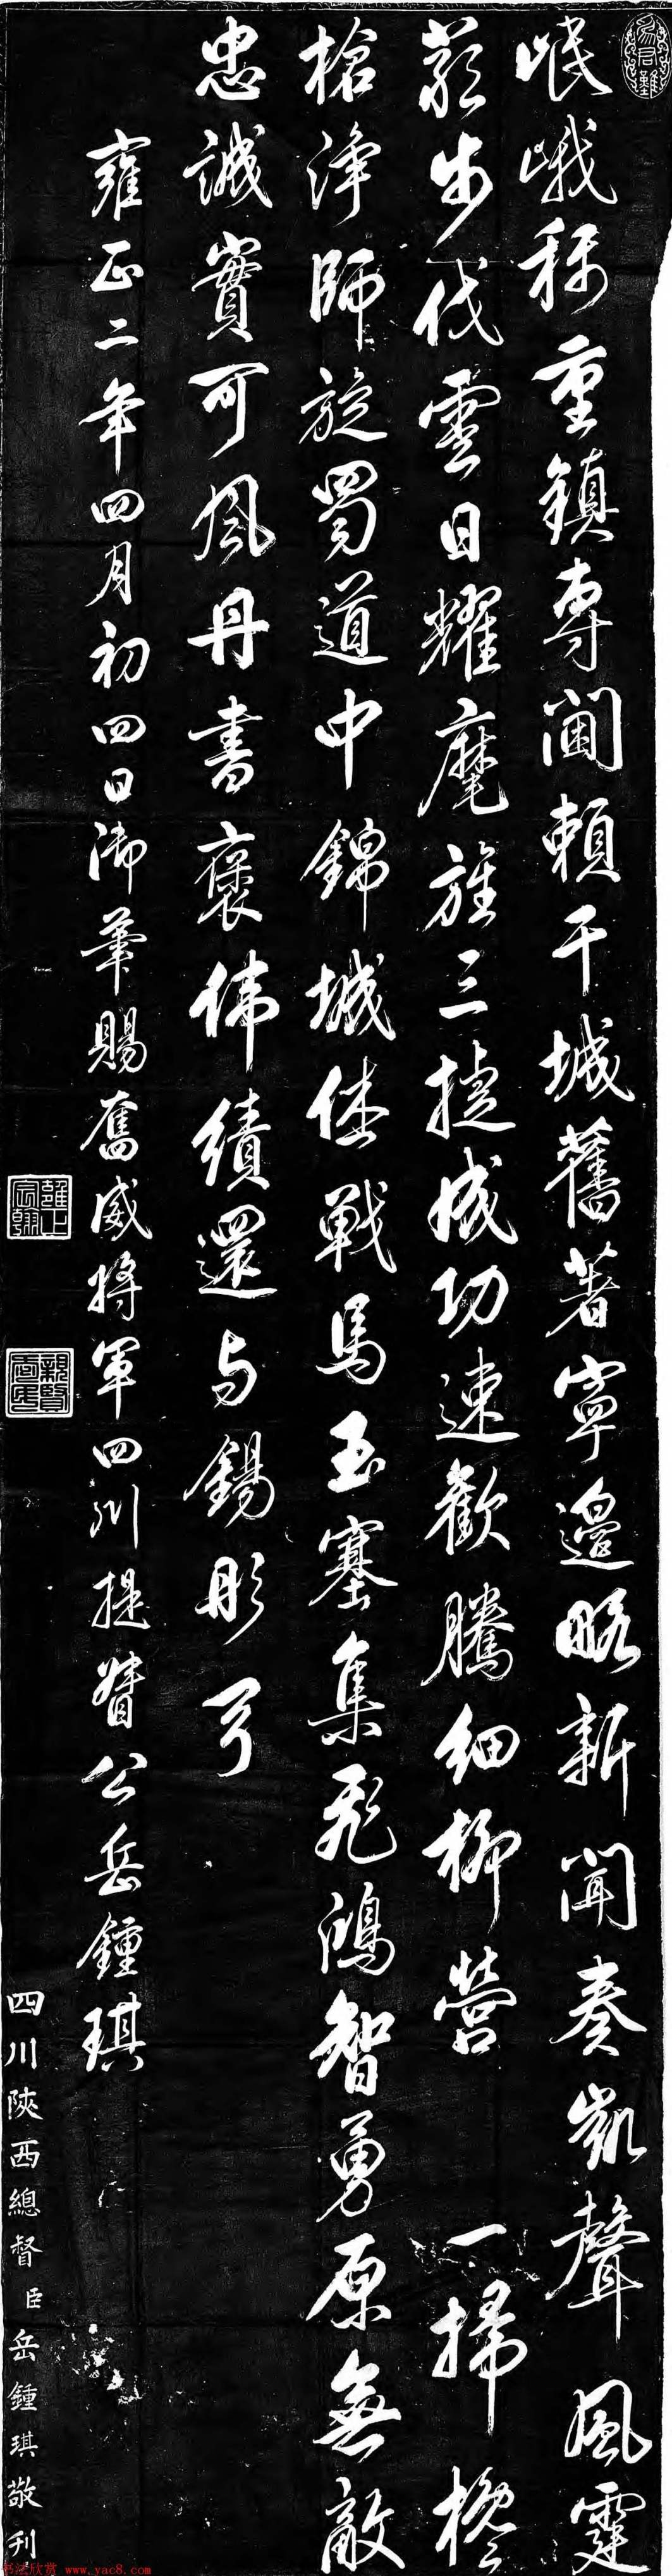 為君難
岷峨称重鎮專閫頼干城舊著寧邊略新聞奏凱聲風霆
步伐雲日耀麾旌三捷成功速歡騰細柳營 一掃欃
槍浄師旋蜀道中錦城休戰馬玉塞集飛鴻智勇原無敵
忠誠實可風丹書褒偉績還与錫彤弓
雍正二年四月初四日御筆賜奮威將軍四川提督公岳鍾琪
雍正宸翰
親賢愛民
四川陝西總督臣岳鍾琪敬刊
书法欣赏 www.yac8.com